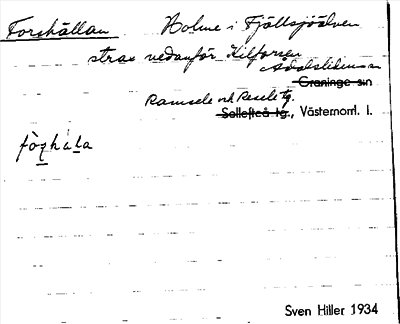 Forshällan Holme i Fjällsjöälven
strax nedanför Kilforsen
Ådalslidens sn
Graninge sn
Ramsele och Resele tg.
Sollefteå tg., Västernorrl. l.
Sven Hiller 1934